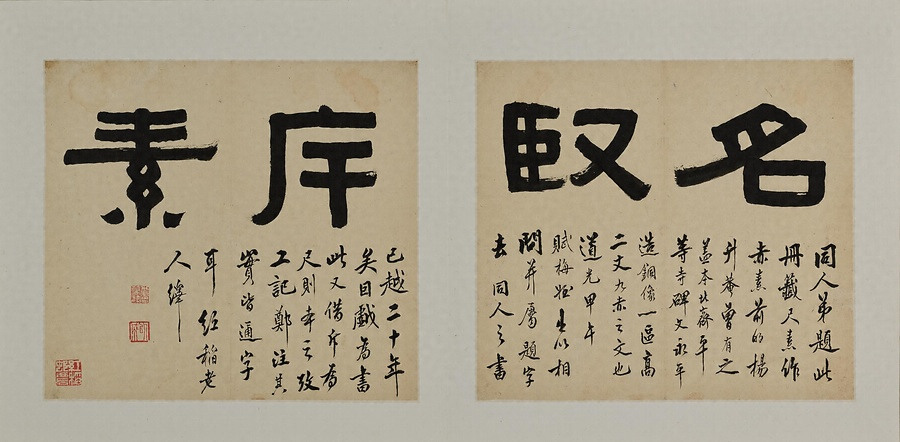 名臤
斥素
同人弟題此
冊籤尺素作
赤素前明楊
升菴曾有之
蓋本北齊平
等寺碑文永平
造銅像一區高
二丈九赤之文也
道光甲午
賦梅姪生以相
問并屬題字
去同人之書
已越二十年
矣因戲為書
此又借斥為
尺則本之攷
工記鄭注其
實皆通字
耳 紅稻老
人繹